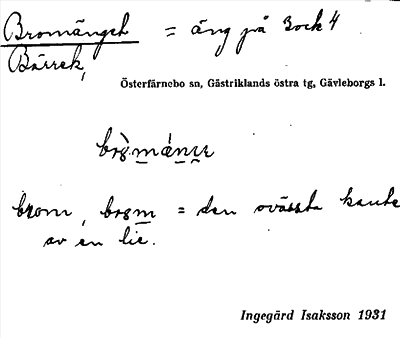 Bromänget = äng på Bock 4
Bärrek,
Österfärnebo sn, Gästriklands östra tg, Gävleborgs l.
brom, = den ovässta kante
av en lie.
Ingegärd Isaksson 1931